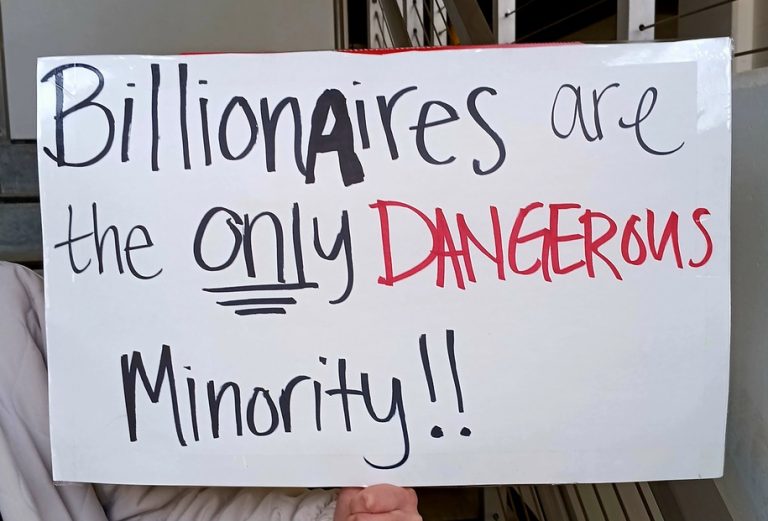 BillionAires are
the only DANGEROUS
Minority!!